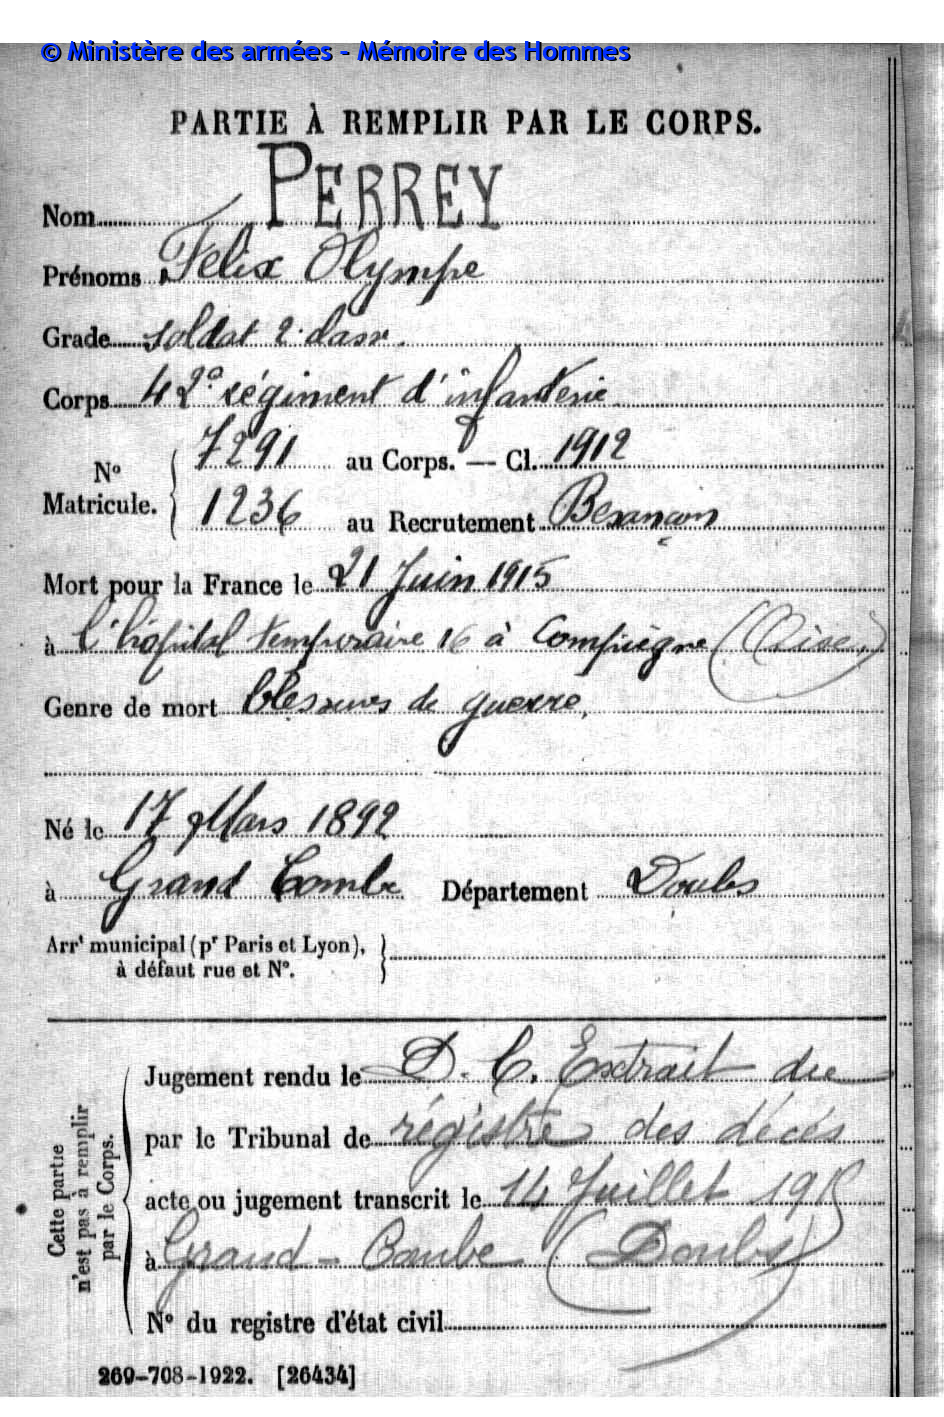 © Ministère des armées - Mémoire des Hommes
PARTIE À REMPLIR PAR LE CORPS.
Nom PERREY
Prénoms Félix Olympe
Grade soldat 2e classe.
Corps 42e régiment d'infanterie
No Matricule. 7291 au Corps. — Cl. 1912
1236 au Recrutement Besançon
Mort pour la France le 21 Juin 1915
à l'hôpital temporaire 16 à Compiègne (Oise)
Genre de mort blessures de guerre,
Né le 17 Mars 1892
à Grand Combe Département Doubs
Arrt municipal (pr Paris et Lyon),
à défaut rue et No.
Cette partie
n'est pas à remplir
par le Corps.
Jugement rendu le D. C. Extrait du
par le Tribunal de régistre des décés
acte ou jugement transcrit le 14 Juillet 1915
à Grand-Combe (Doubs)
No du registre d'état civil
269-708-1922. [26434]